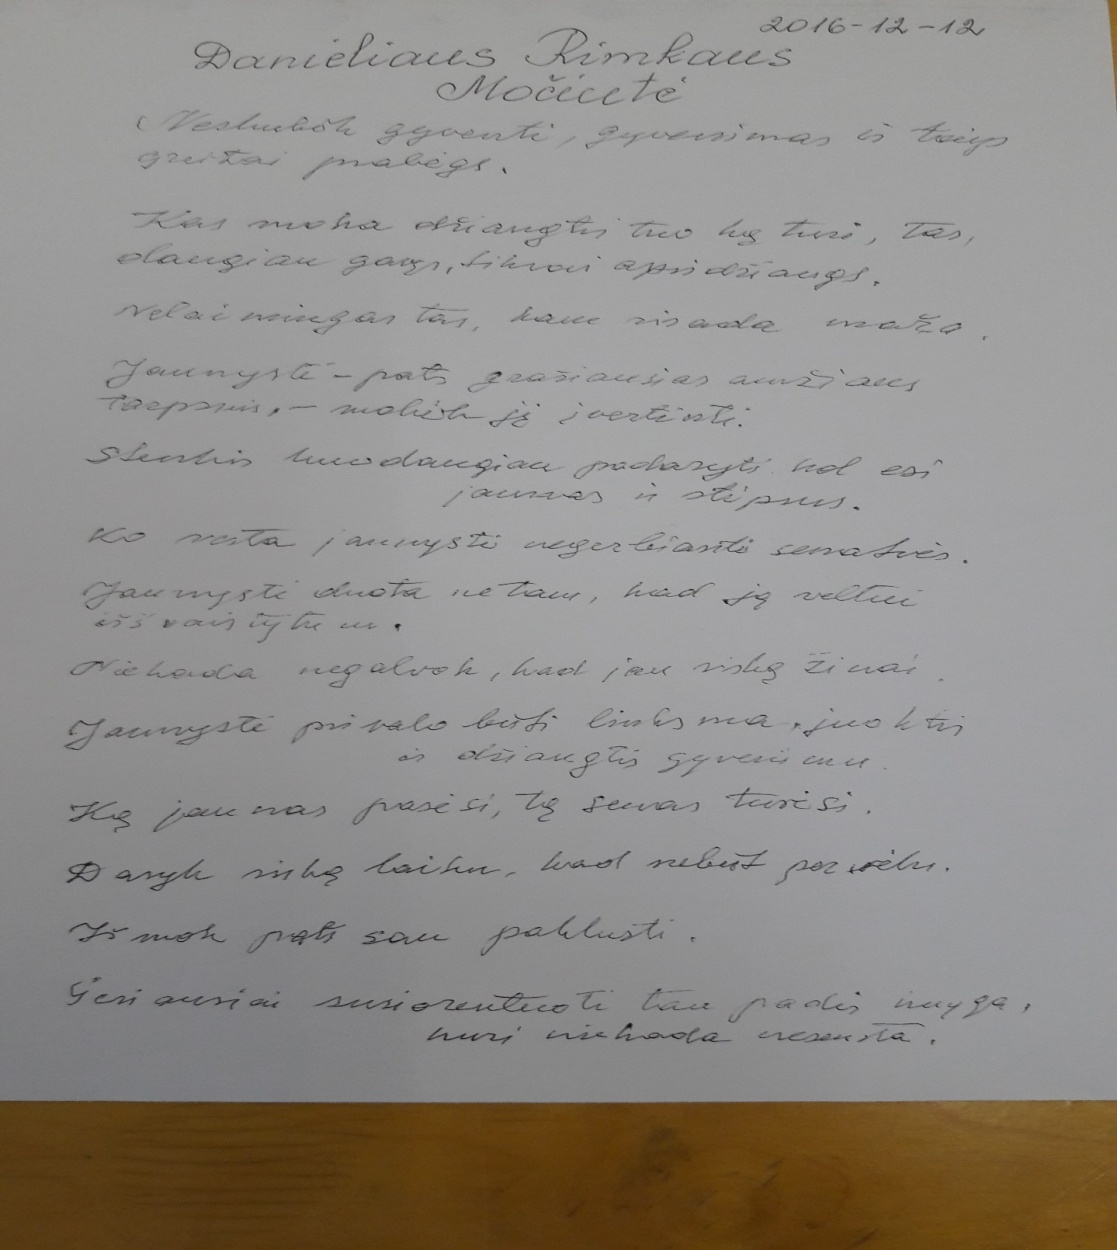 2016-12-12
Danieliaus Rimkaus
Močiutė
Neskubėk gyventi, gyvenimas ir taip
greitai prabėgs.
Kas moka džiaugtis tuo ką turi, tas,
daugiau gavęs, tikrai apsidžiaugs.
Nelaimingas tas, kam visada maža.
Jaunystė - pats gražiausias amžiaus
tarpsnis, - mokėk ją įvertinti.
Stenkis kuo daugiau padaryti kol esi
jaunas ir stiprus.
Ko verta jaunystė negerbianti senatvės.
Jaunystė duota ne tam, kad ją veltui
iššvaistytum.
Niekada negalvok, kad jau viską žinai.
Jaunystė privalo būti linksma, juoktis
ir džiaugtis gyvenimu.
Ką jaunas pasėsi, tą senas turėsi.
Daryk viską laiku, kad nebūt per vėlu.
Išmok pats sau paklusti.
Geriausiai susiorentuoti tau padės knyga,
kuri niekada nesensta.